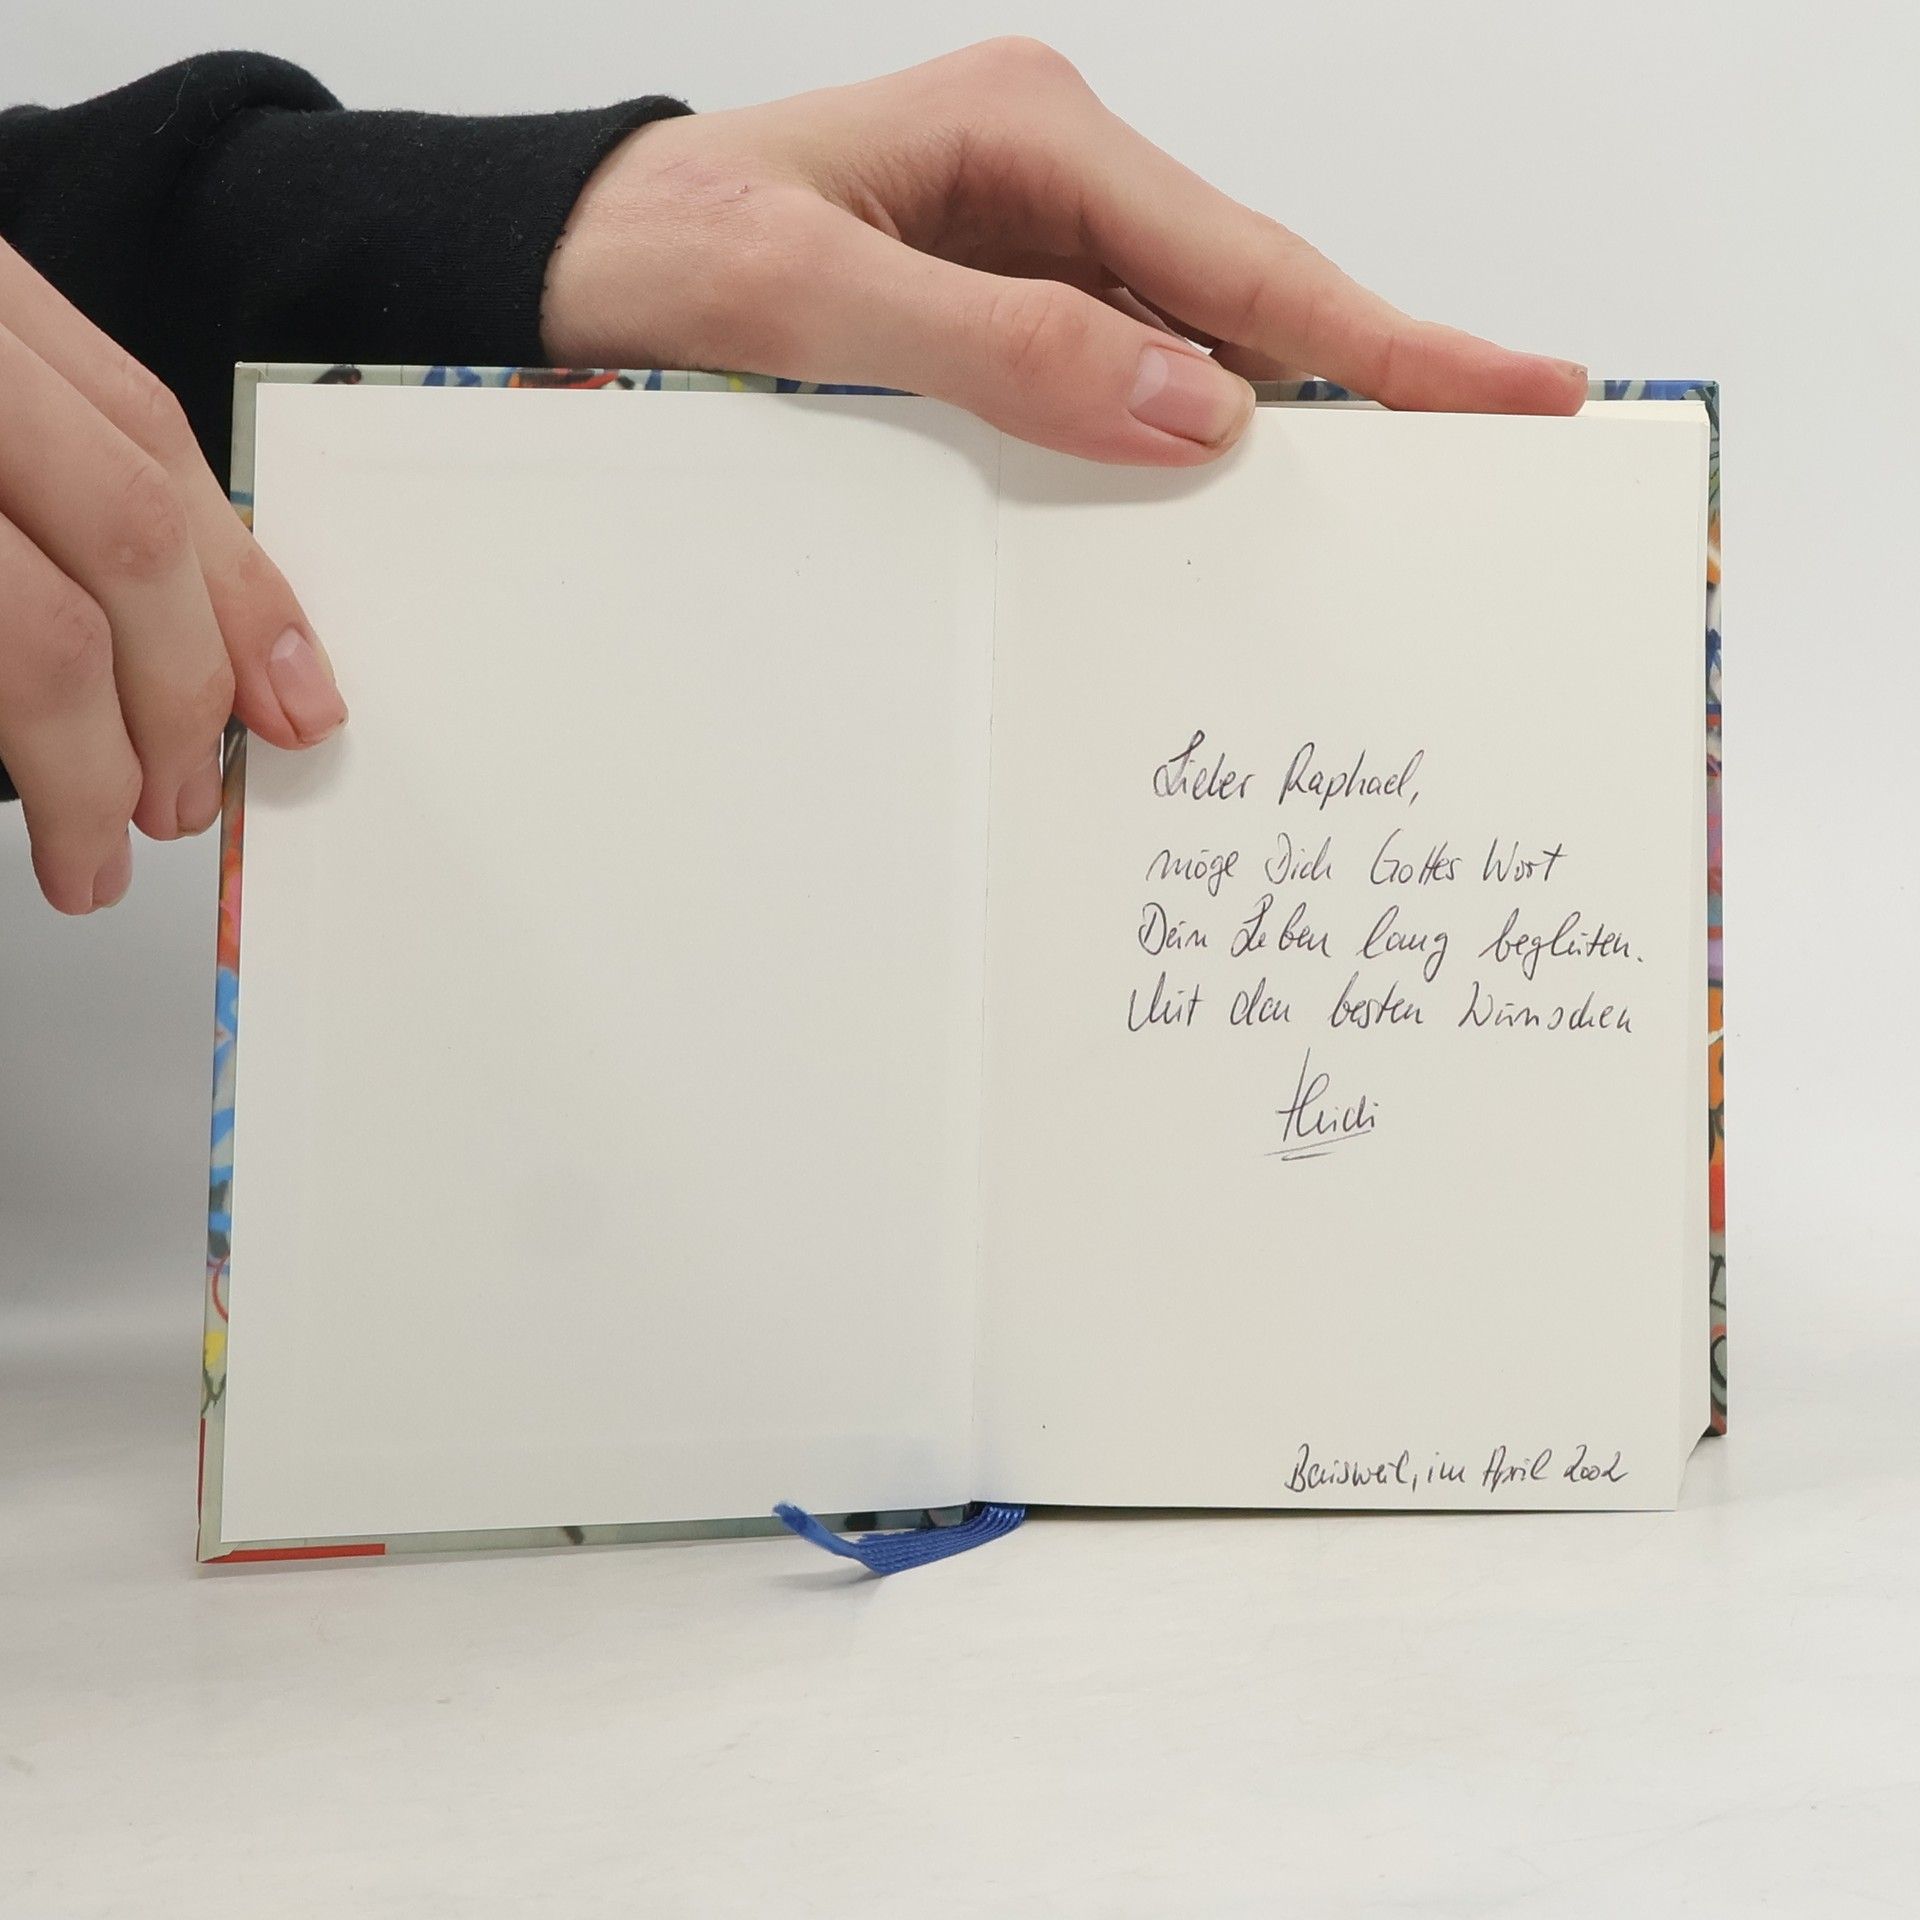 Lieber Raphael,
möge Dich Gottes Wort
Dein Leben lang begleiten.
Mit den besten Wünschen
Heidi
Baisweil, im April 2002